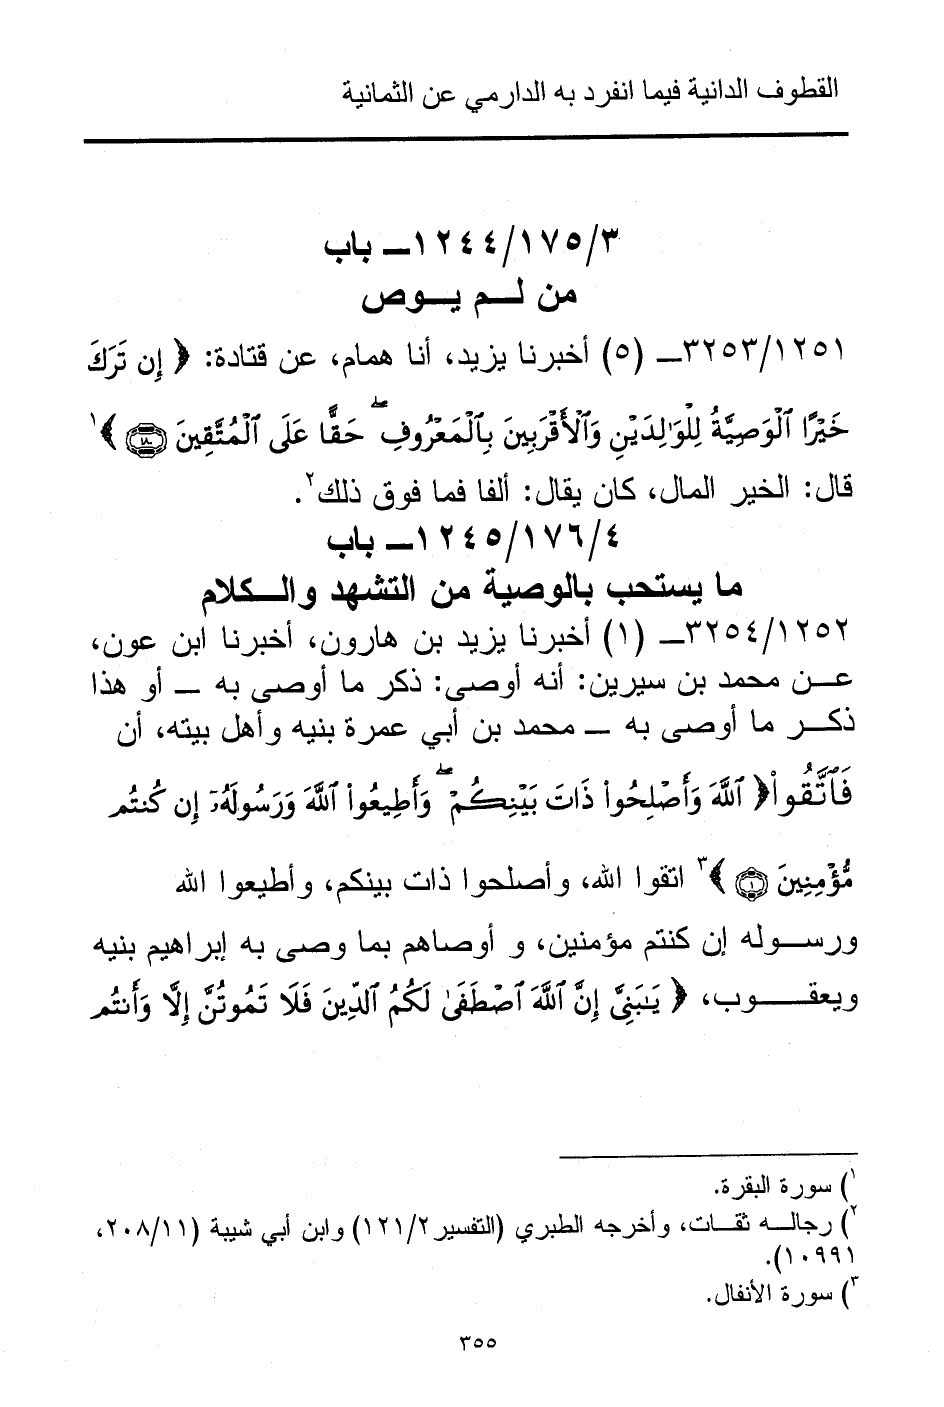 القطوف الدانية فيما انفرد به الدارمي عن الثمانية
١٢٤٤/١٧٥/٣ــ باب
من لـم يـوص
٣٢٥٣/١٢٥١ــ (٥) أخبرنا يزيد، أنا همام، عن قتادة: ﴿ إِن تَرَكَ
خَيْرًا ٱلْوَصِيَّةُ لِلْوَٰلِدَيْنِ وَٱلْأَقْرَبِينَ بِٱلْمَعْرُوفِ ۖ حَقًّا عَلَى ٱلْمُتَّقِينَ ١٨٠ ﴾١
قال: الخير المال، كان يقال: ألفا فما فوق ذلك٢.
١٢٤٥/١٧٦/٤ــ باب
ما يستحب بالوصية من التشهد والـكلام
٣٢٥٤/١٢٥٢ــ (١) أخبرنا يزيد بن هارون، أخبرنا ابن عون،
عـن محمد بن سيرين: أنه أوصى: ذكر ما أوصى به ــ أو هذا
ذكـر ما أوصى به ــ محمد بن أبي عمرة بنيه وأهل بيته، أن
فَٱتَّقُوا۟﴿ ٱللَّهَ وَأَصْلِحُوا۟ ذَاتَ بَيْنِكُمْ ۖ وَأَطِيعُوا۟ ٱللَّهَ وَرَسُولَهُۥٓ إِن كُنتُم
مُّؤْمِنِينَ ١ ﴾٣ اتقوا الله، وأصلحوا ذات بينكم، وأطيعوا الله
ورسـوله إن كنتم مؤمنين، و أوصاهم بما وصى به إبراهيم بنيه
ويعقـــوب، ﴿ يَٰبَنِىَّ إِنَّ ٱللَّهَ ٱصْطَفَىٰ لَكُمُ ٱلدِّينَ فَلَا تَمُوتُنَّ إِلَّا وَأَنتُم
١) سورة البقرة.
٢) رجالـه ثقـات، وأخرجه الطبري (التفسير١٢١/٢) وابن أبي شيبة (٢٠٨/١١،
١٠٩٩١).
٣) سورة الأنفال.
٣٥٥